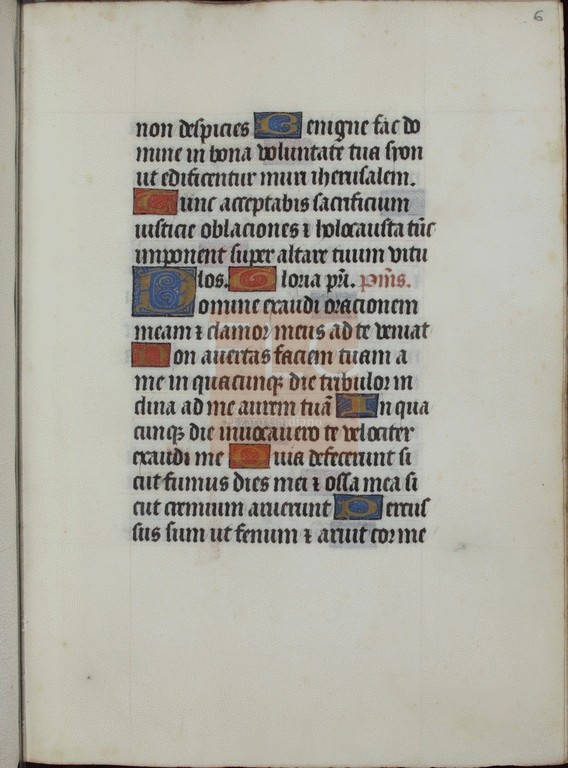 6
non despicies Benigne fac do
mine in bona voluntate tua syon
ut edificentur muri iherusalem.
Tunc acceptabis sacrificium
iusticie oblaciones ⁊ holocausta tūc
imponent super altare tuum vitu
los. Gloria pr̄i. p̄ms.
Domine exaudi oracionem
meam ⁊ clamor meus ad te veniat
Non auertas faciem tuam a
me in quacunqꝫ die tribulor in
clina ad me aurem tuā In qua
cunqꝫ die inuocauero te velociter
exaudi me Quia defecerunt si
cut fumus dies mei ⁊ ossa mea si
cut cremium aruerunt Percus
sus sum ut fenum ⁊ aruit cor me